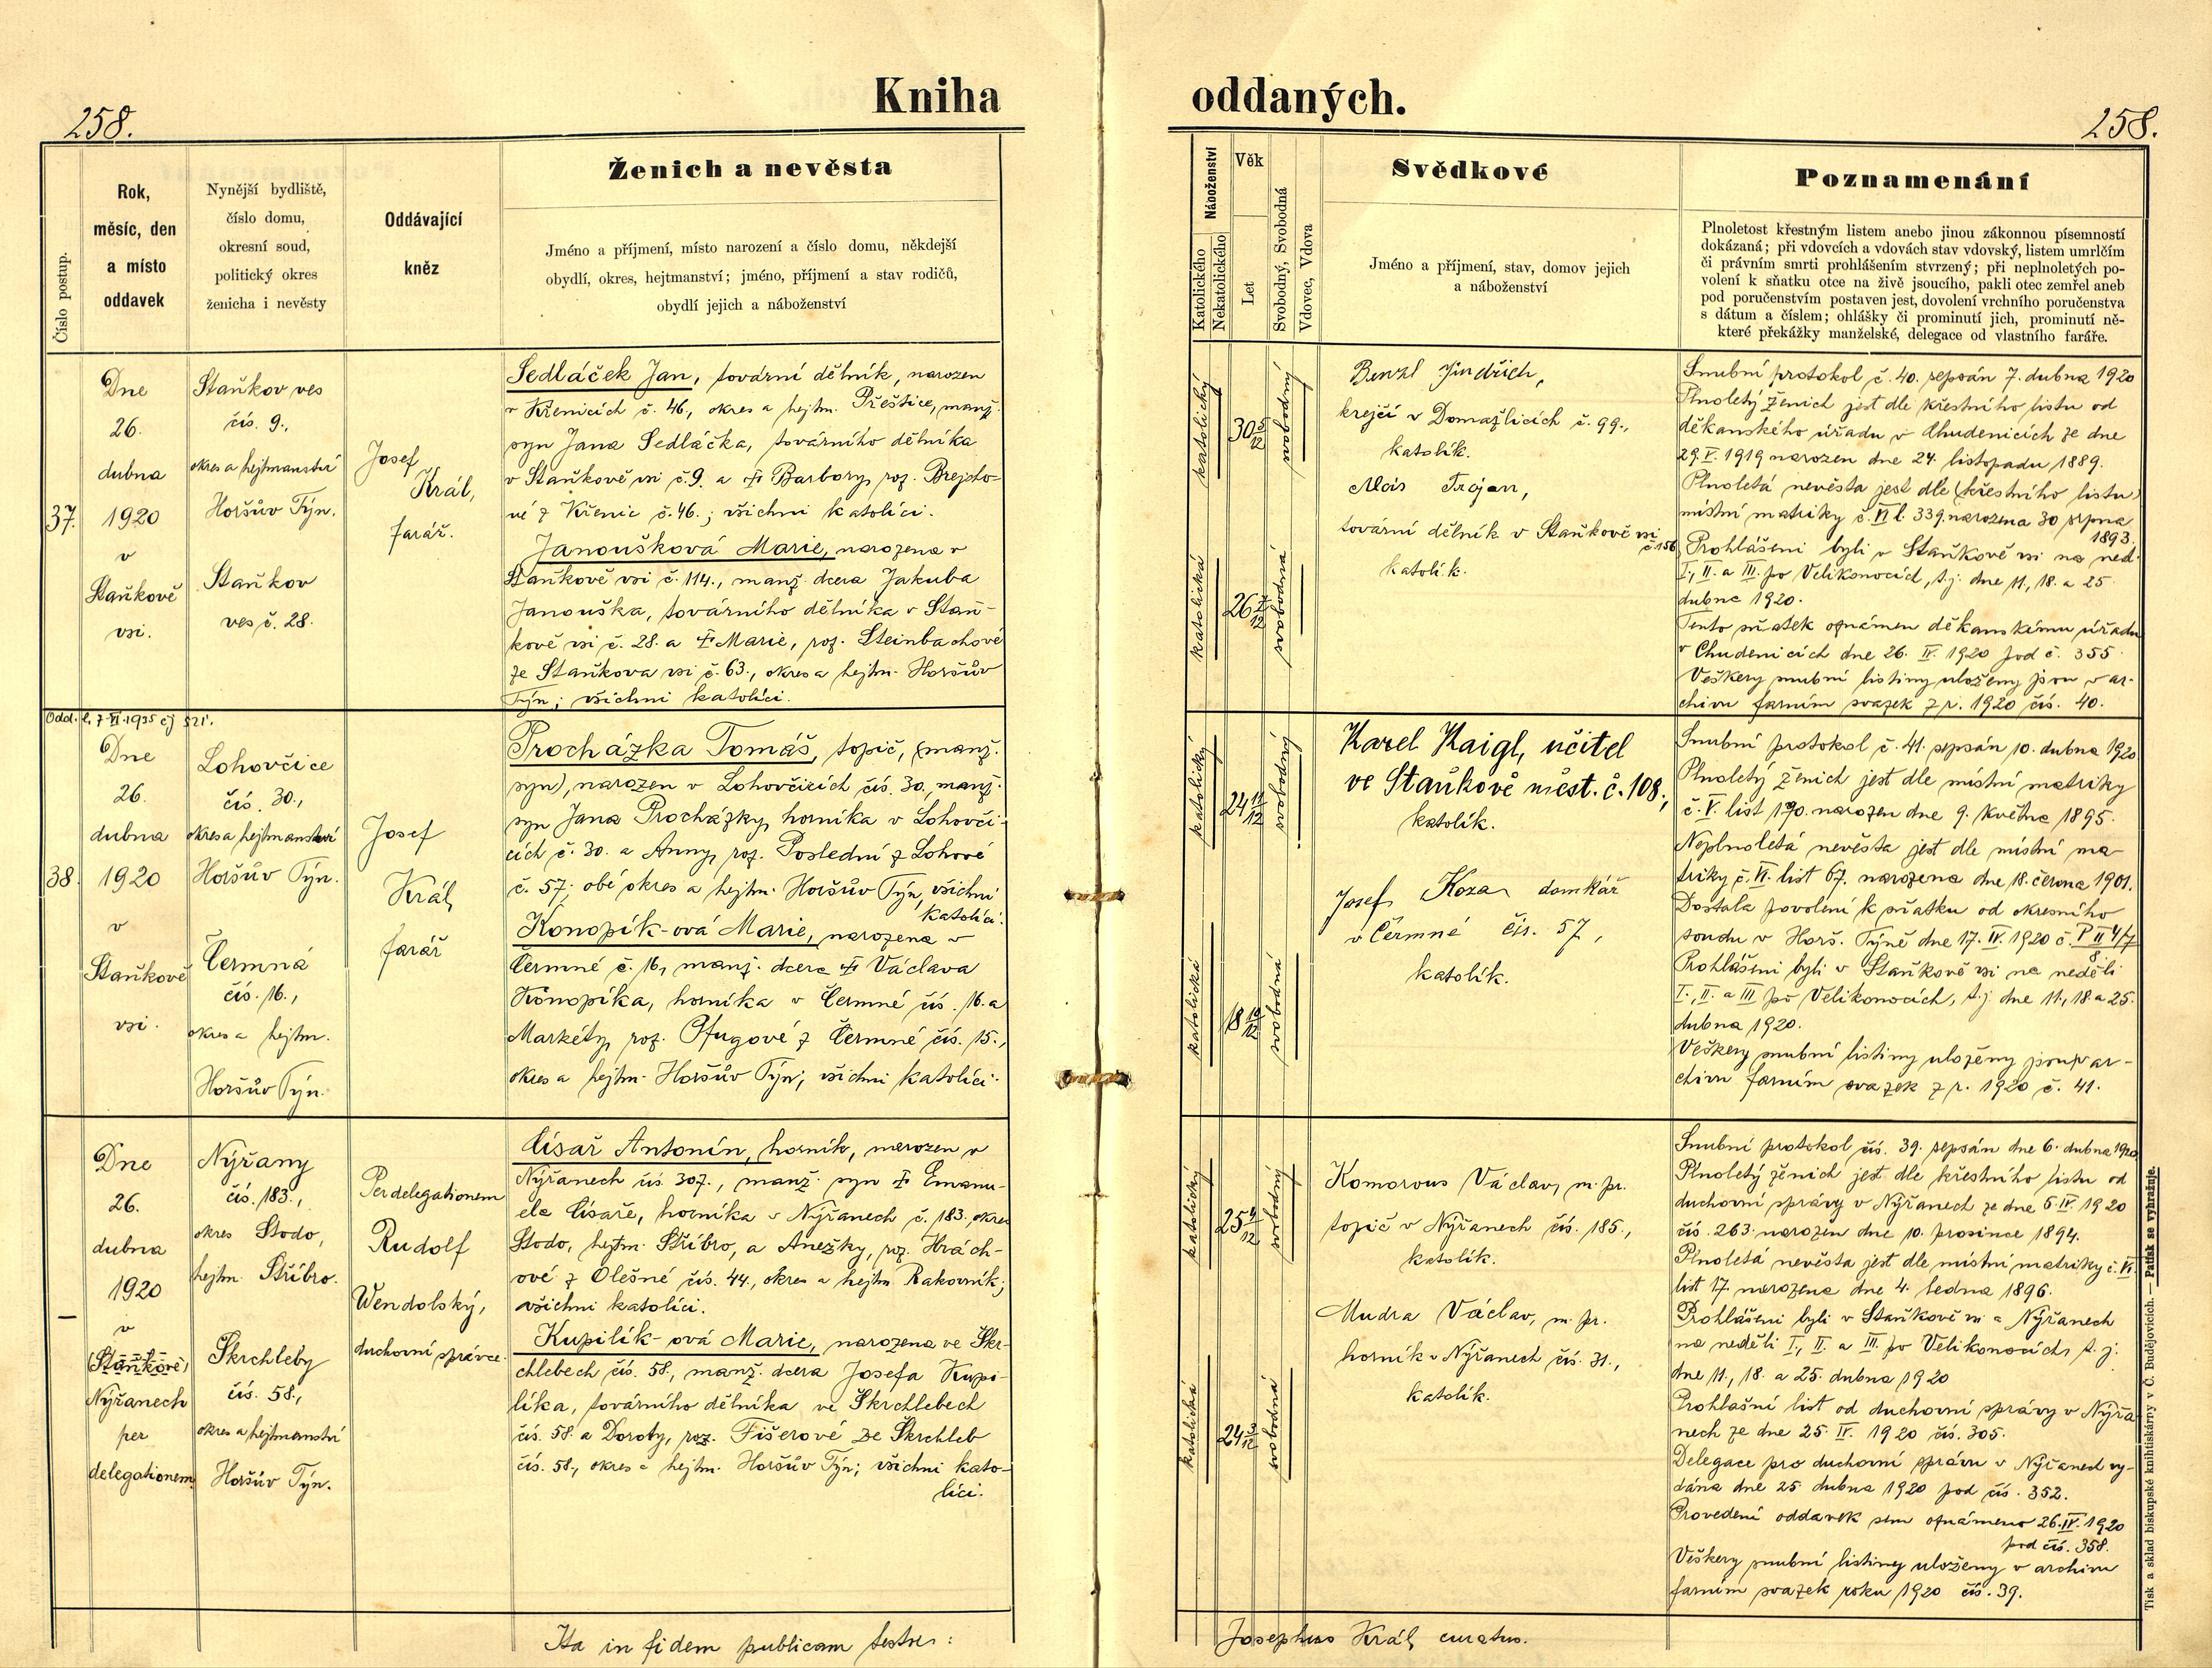 258.
Kniha
oddaných.
258.
Číslo postup.
Rok,
měsíc, den
a místo
oddavek
Nynější bydliště,
číslo domu,
okresní soud,
politický okres
ženicha i nevěsty
Oddávající
kněz
Ženich a nevěsta
Jméno a příjmení, místo narození a číslo domu, někdejší
obydlí, okres, hejtmanství; jméno, příjmení a stav rodičů,
obydlí jejich a náboženství
Náboženství
Katolického
Nekatolického
Věk
Let
Svobodný, Svobodná
Vdovec, Vdova
Svědkové
Jméno a příjmení, stav, domov jejich
a náboženství
Poznamenání
Plnoletost křestným listem anebo jinou zákonnou písemností
dokázaná; při vdovcích a vdovách stav vdovský, listem umrlčím
či právním smrti prohlášením stvrzený; při neplnoletých po-
volení k sňatku otce na živě jsoucího, pakli otec zemřel aneb
pod poručenstvím postaven jest, dovolení vrchního poručenstva
s dátum a číslem; ohlášky či prominutí jich, prominutí ně-
které překážky manželské, delegace od vlastního faráře.
37.
Dne
26.
dubna
1920
v
Staňkově
vsi.
Staňkov ves
čís. 9.,
okres a hejtmanství
Horšův Týn.
Staňkov
ves č. 28.
Josef
Král,
farář.
Sedláček Jan, tovární dělník, narozen
v Křenicích č. 46, okres a hejtm. Přeštice, manž.
syn Jana Sedláčka, továrního dělníka
v Staňkově vsi č. 9. a † Barbory, roz. Brejcho-
vé z Křenic č. 46.; všichni katolíci.
Janoušková Marie, narozena v
Staňkově vsi č. 114., manž. dcera Jakuba
Janouška, továrního dělníka v Staň-
kově vsi č. 28. a † Marie, roz. Steinbachové
ze Staňkova vsi č. 63., okres a hejtm. Horšův
Týn; všichni katolíci.
katolický
30 5/12
svobodný
katolická
26 7/12
svobodná
Benzl Jindřich,
krejčí v Domažlicích č. 99.,
katolík.
Alois Trojan,
tovární dělník v Staňkově vsi
č. 156
katolík.
Snubní protokol č. 40. sepsán 7. dubna 1920
Plnoletý ženich jest dle křestního listu od
děkanského úřadu v Chudenicích ze dne
29. V. 1919 narozen dne 24. listopadu 1889.
Plnoletá nevěsta jest dle (křestního listu)
místní matriky č. VI l. 339. narozena 30 srpna
1893.
Prohlášeni byli v Staňkově vsi na ned.
I., II. a III. po Velikonocích, t. j. dne 11., 18. a 25
dubna 1920.
Tento sňatek oznámen děkanskému úřadu
v Chudenicích dne 26. IV. 1920 pod č. 355
Veškery snubní listiny uloženy jsou v ar-
chivu farním svazek z r. 1920 čís. 40.
Odd. l. 7. VI. 1935 čj 521.
38.
Dne
26.
dubna
1920
v
Staňkově
vsi.
Lohovčice
čís. 30.,
okres a hejtmanství
Horšův Týn.
Čermná
čís. 16.,
okres a hejtm.
Horšův Týn.
Josef
Král,
farář
Procházka Tomáš, topič, (manž.
syn), narozen v Lohovčicích čís. 30., manž.
syn Jana Procházky, horníka v Lohovči-
cích č. 30. a Anny, roz. Poslední z Lohové
č. 57; obé okres a hejtm. Horšův Týn, všichni
katolíci.
Konopík-ová Marie, narozena v
Čermné č. 16, manž. dcera † Václava
Konopíka, horníka v Čermné čís. 16. a
Markéty, roz. Pfugové z Čermné čís. 15.,
okres a hejtm. Horšův Týn; všichni katolíci.
katolický
24 11/12
svobodný
katolická
18 10/12
svobodná
Karel Kaigl, učitel
ve Staňkově měst. č. 108;
katolík.
Josef Koza domkář
v Čermné čís. 57,
katolík.
Snubní protokol č. 41. sepsán 10. dubna 1920
Plnoletý ženich jest dle místní matriky
č. V. list 190. narozen dne 9. května 1895.
Neplnoletá nevěsta jest dle místní ma
triky č. VI. list 67. narozena dne 18. června 1901.
Dostala povolení k sňatku od okresního
soudu v Horš. Týně dne 17. IV. 1920 č. P II 4/7
8
Prohlášeni byli v Staňkově vsi na neděli
I., II. a III po Velikonocích, t. j. dne 11., 18. a 25.
dubna 1920.
Veškery snubní listiny uloženy jsou v ar-
chivu farním svazek z r. 1920 č. 41.
—
Dne
26.
dubna
1920
v
(Staňkově)
Nýřanech
per
delegationem.
Nýřany
čís. 183.,
okres Stodo,
hejtm. Stříbro.
Skrchleby
čís. 58.,
okres a hejtmanství
Horšův Týn.
Per delegationem
Rudolf
Wendolský,
duchovní správce.
Císař Antonín, horník, narozen v
Nýřanech čís 307., manž. syn † Emanu-
ele Císaře, horníka v Nýřanech č. 183. okres
Stodo, hejtm. Stříbro, a Anežky, roz. Hrách-
ové z Olešné čís. 44., okres a hejtm. Rakovník;
všichni katolíci.
Kupilík-ová Marie, narozena ve Skr-
chlebech čís. 58., manž. dcera Josefa Kupi-
líka, továrního dělníka ve Skrchlebech
čís. 58. a Doroty, roz. Fišerové ze Skrchleb
čís. 58., okres a hejtm. Horšův Týn; všichni kato-
líci.
katolický
25 4/12
svobodný
katolická
24 3/12
svobodná
Komorous Václav, m. pr.
topič v Nýřanech čís. 185.,
katolík.
Mudra Václav, m. pr.
horník v Nýřanech čís. 31.,
katolík.
Snubní protokol čís. 39. sepsán dne 6. dubna 1920
Plnoletý ženich jest dle křestního listu od
duchovní správy v Nýřanech ze dne 6 IV. 1920
čís. 263. narozen dne 10. prosince 1894.
Plnoletá nevěsta jest dle místní matriky č. VI.
list 17. narozena dne 4. ledna 1896.
Prohlášeni byli v Staňkově vsi a Nýřanech
na neděli I., II. a III. po Velikonocích, t. j.
dne 11., 18. a 25. dubna 1920
Prohlašní list od duchovní správy v Nýřa
nech ze dne 25. IV. 1920 čís. 305.
Delegace pro duchovní správu v Nýřanech vy-
dána dne 25 dubna 1920 pod čís. 352.
Provedení oddavek sem oznámeno 26. IV. 1920
pod čís. 358.
Veškery snubní listiny uloženy v archivu
farním svazek roku 1920 čís. 39.
Ita in fidem publicam testor:
Josephus Král, curatus.
Tisk a sklad biskupské knihtiskárny v Č. Budějovicích. — Patisk se vyhražuje.